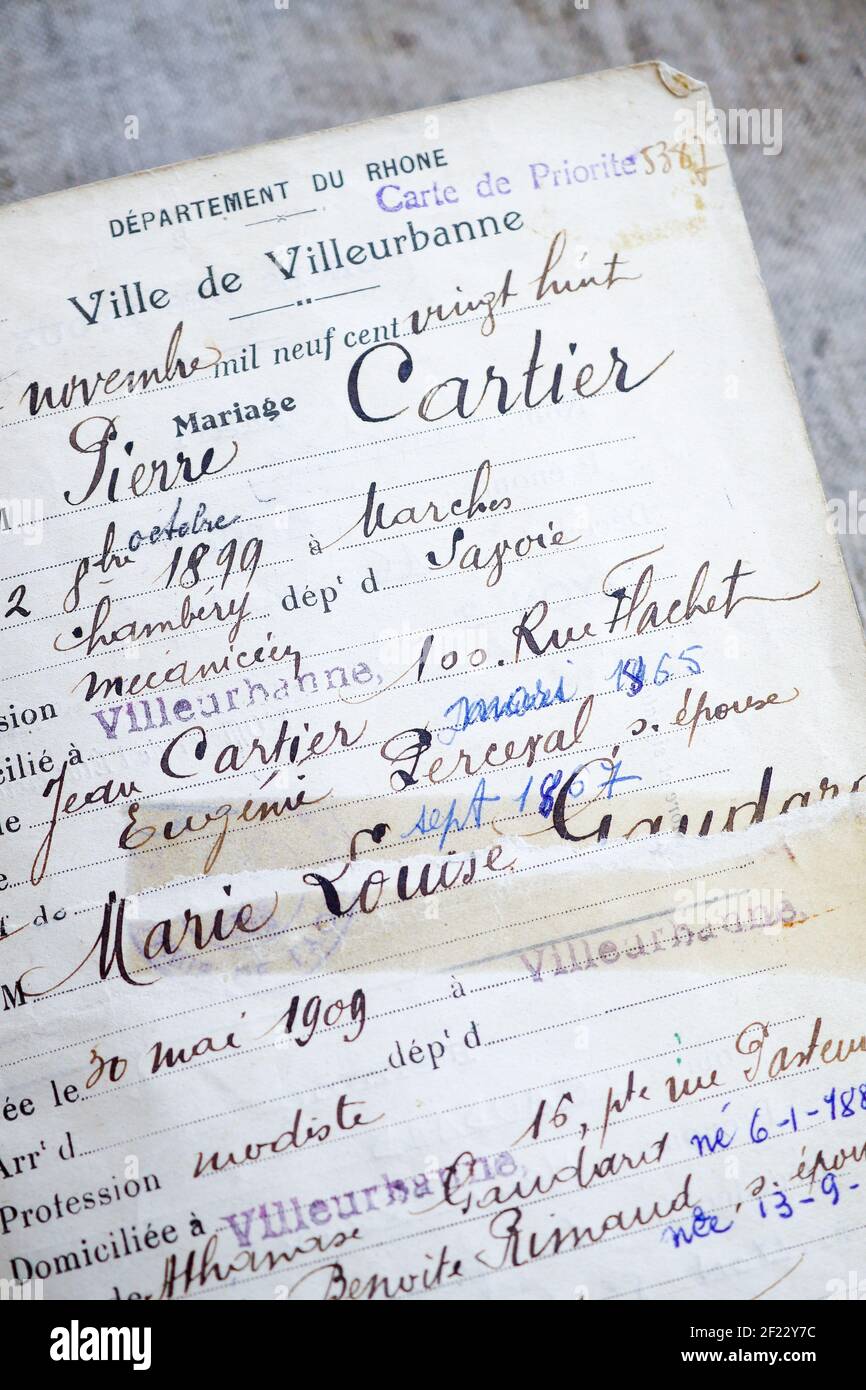 DÉPARTEMENT DU RHONE
Carte de Priorité 5387
Ville de Villeurbanne
novembre mil neuf cent vingt huit
Mariage
M Pierre Cartier
octobre
2 8bre 1899 à Marches
Chambéry dép^t d Savoie
sion mécanicien
cilié à Villeurbanne, 100. Rue Flachet
Jean Cartier mari 1865
Eugénie Perceval, s. épouse
sept 1867
de
M Marie Louise Gaudard
ée le 30 mai 1909 à Villeurbanne
Arr^t d dép^t d
Profession modiste
Domiciliée à Villeurbanne, 15, pte rue Pasteur
de Athanase Gaudard né 6-1-188
Benoite Rimaud, s. épou
née 13-9-
alamy
Image ID: 2F22Y7C
www.alamy.com